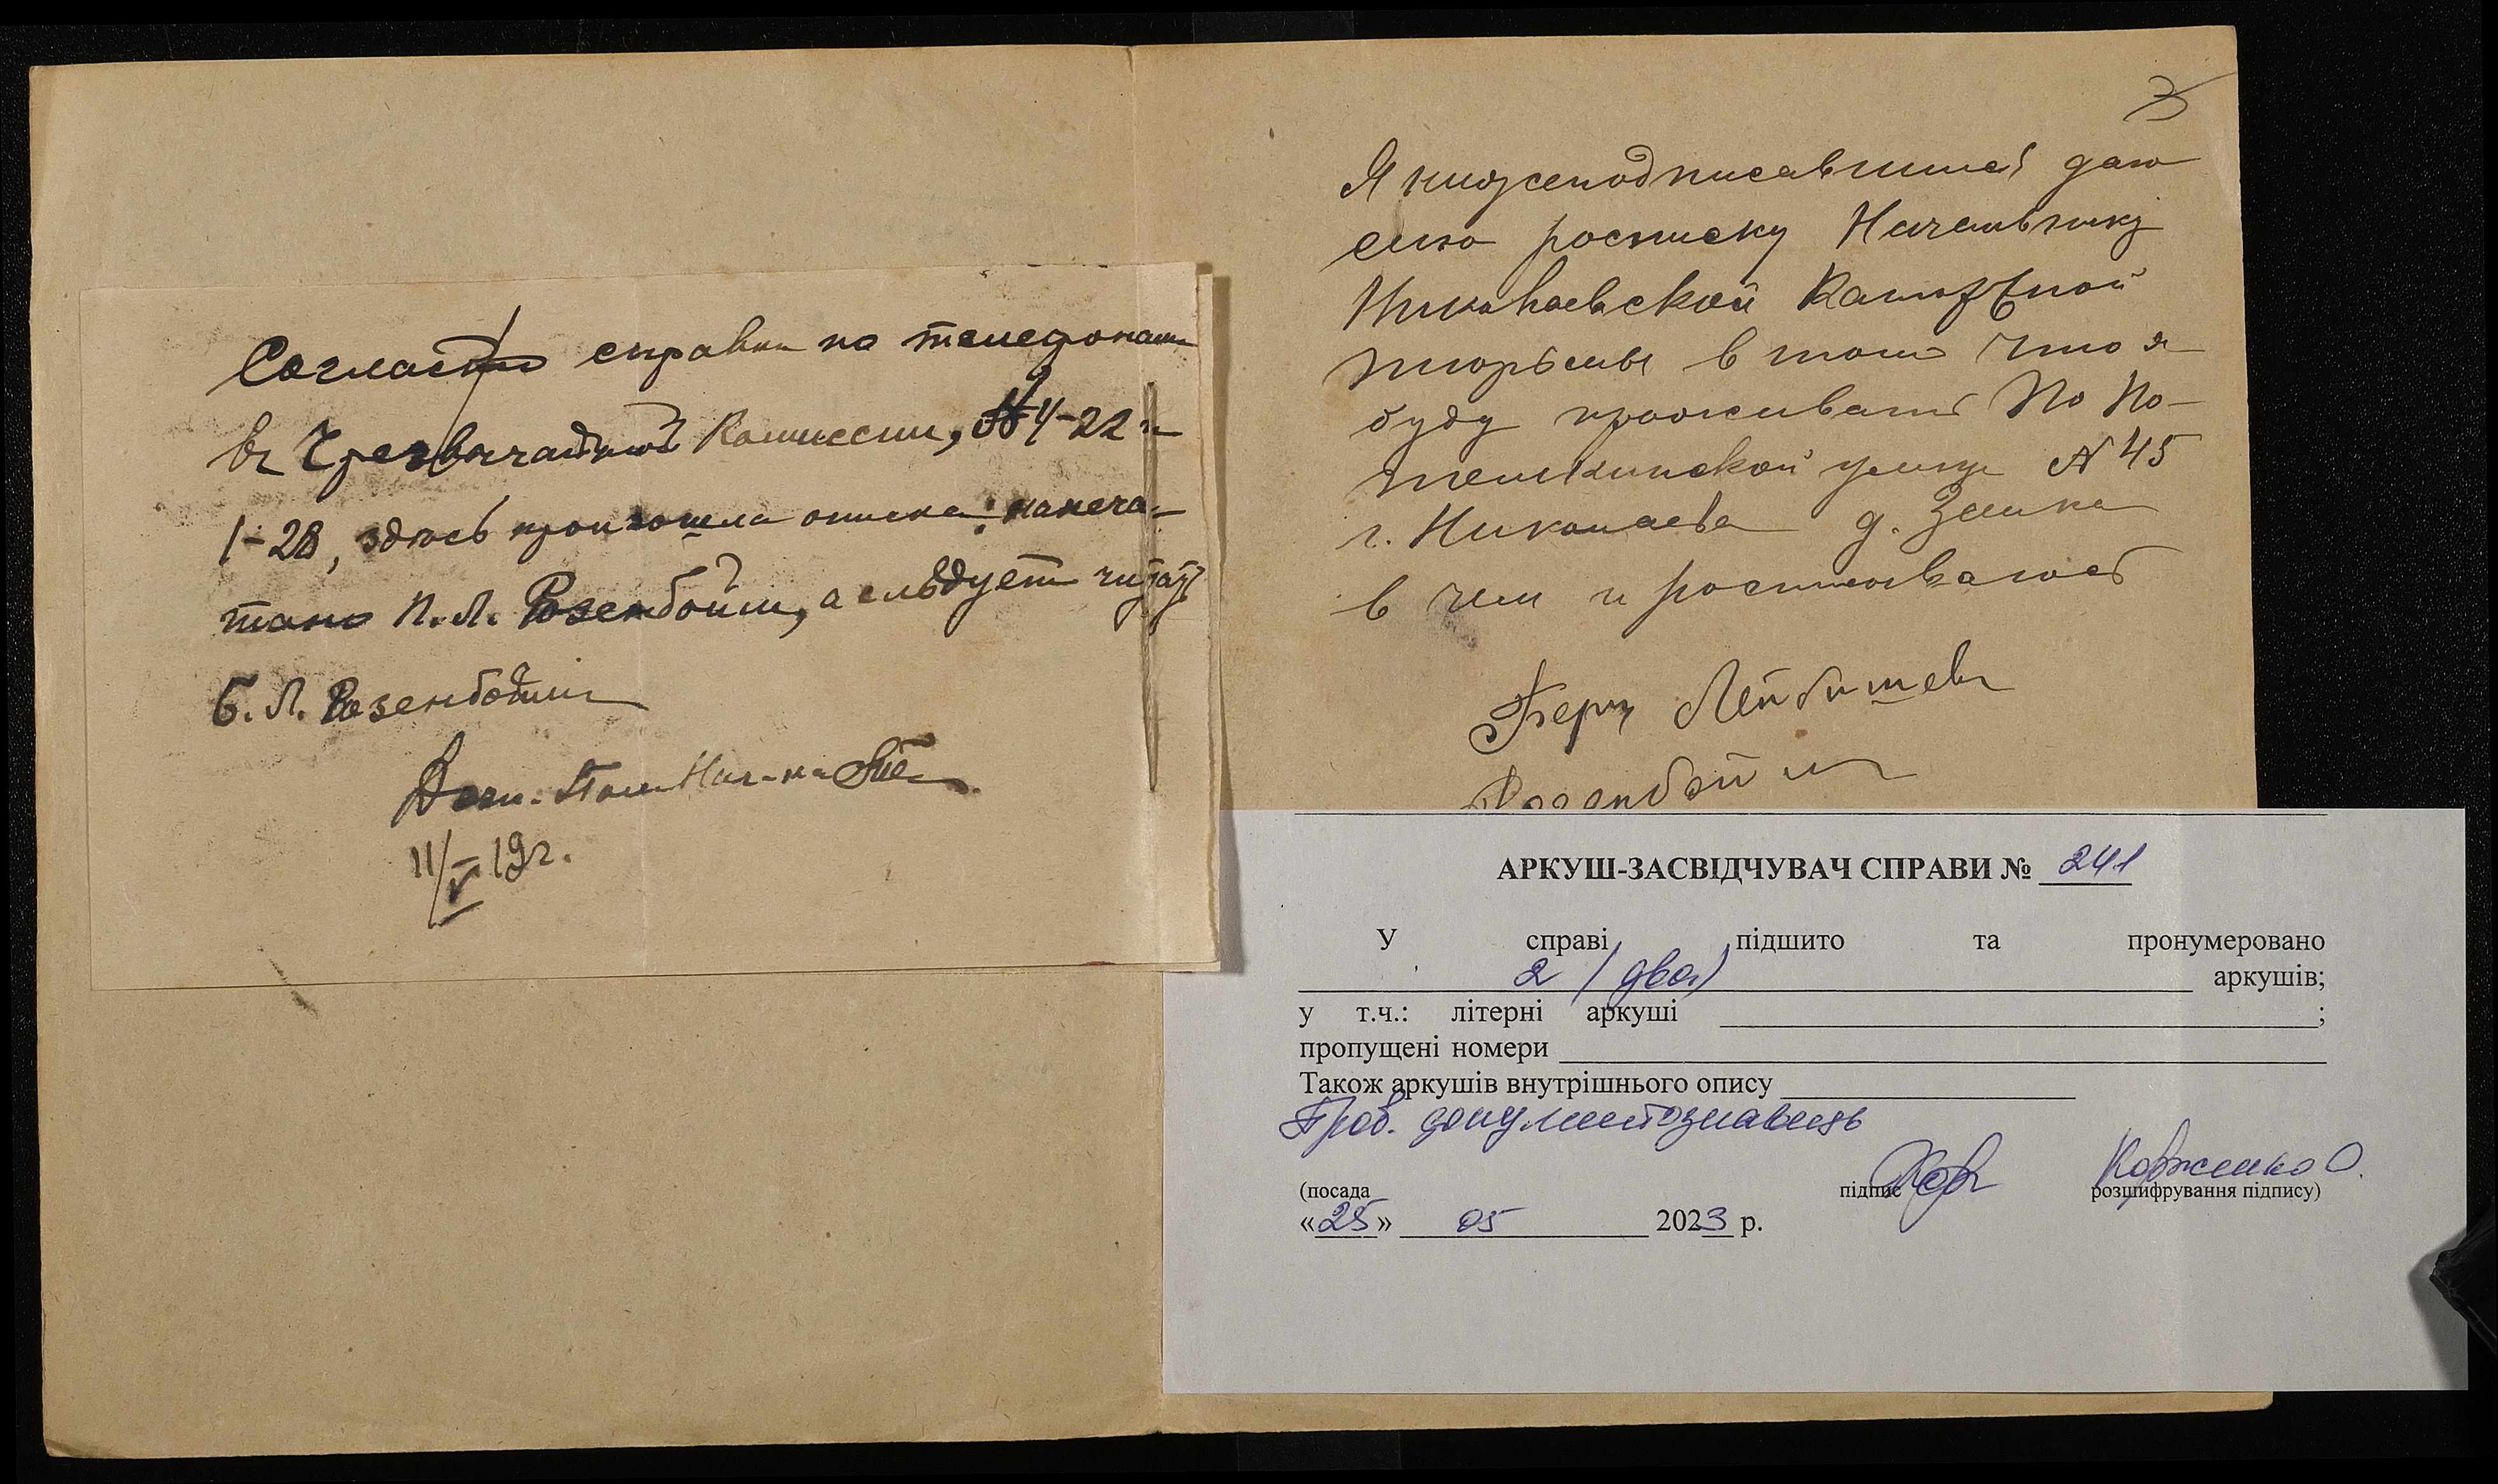 Согласно справки по телефонам
въ Чрезвычайной Комиссии, № 4-22 и
1-28, здѣсь произошла описка: напеча-
тано П. Л. Розенбойм, а слѣдуетъ читать
Б. Л. Розенбойм
Пом. Нач-ка
11/V 19г.
3
Я нижеподписавшийся даю
сию росписку Начальнику
Николаевской Каторжной
тюрьмы в том что я
буду проживать По По-
темкинской улице № 45
г. Николаева д. Зайка
в чем и росписываюсь
Берц Лейбишев
Розенбойм
АРКУШ-ЗАСВІДЧУВАЧ СПРАВИ № 241
У справі підшито та пронумеровано
2 (два) аркушів;
у т.ч.: літерні аркуші ;
пропущені номери
Також аркушів внутрішнього опису
Пров. документознавець
Корженко О.
(посада підпис розшифрування підпису)
«25» 05 2023 р.